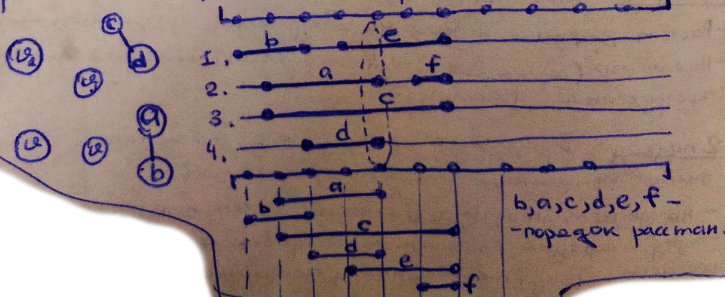 c
d
a
b
1. b e
2. a f
3. c
4. d
a
b
c
d
e
f
b, a, c, d, e, f –
- порядок расстан.